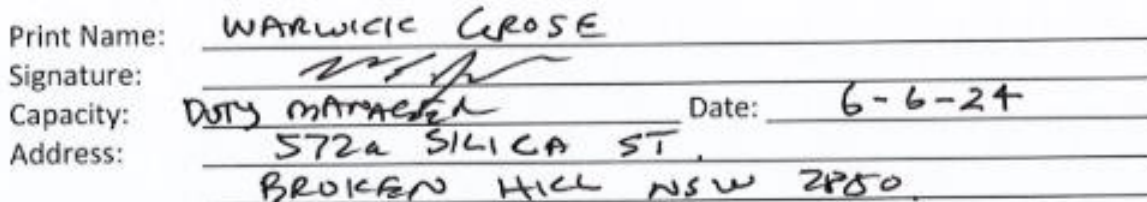 Print Name: WARWICK GROSE
Signature:
Capacity: DUTY MANAGER Date: 6-6-24
Address: 572a SILICA ST.
BROKEN HILL NSW 2880.